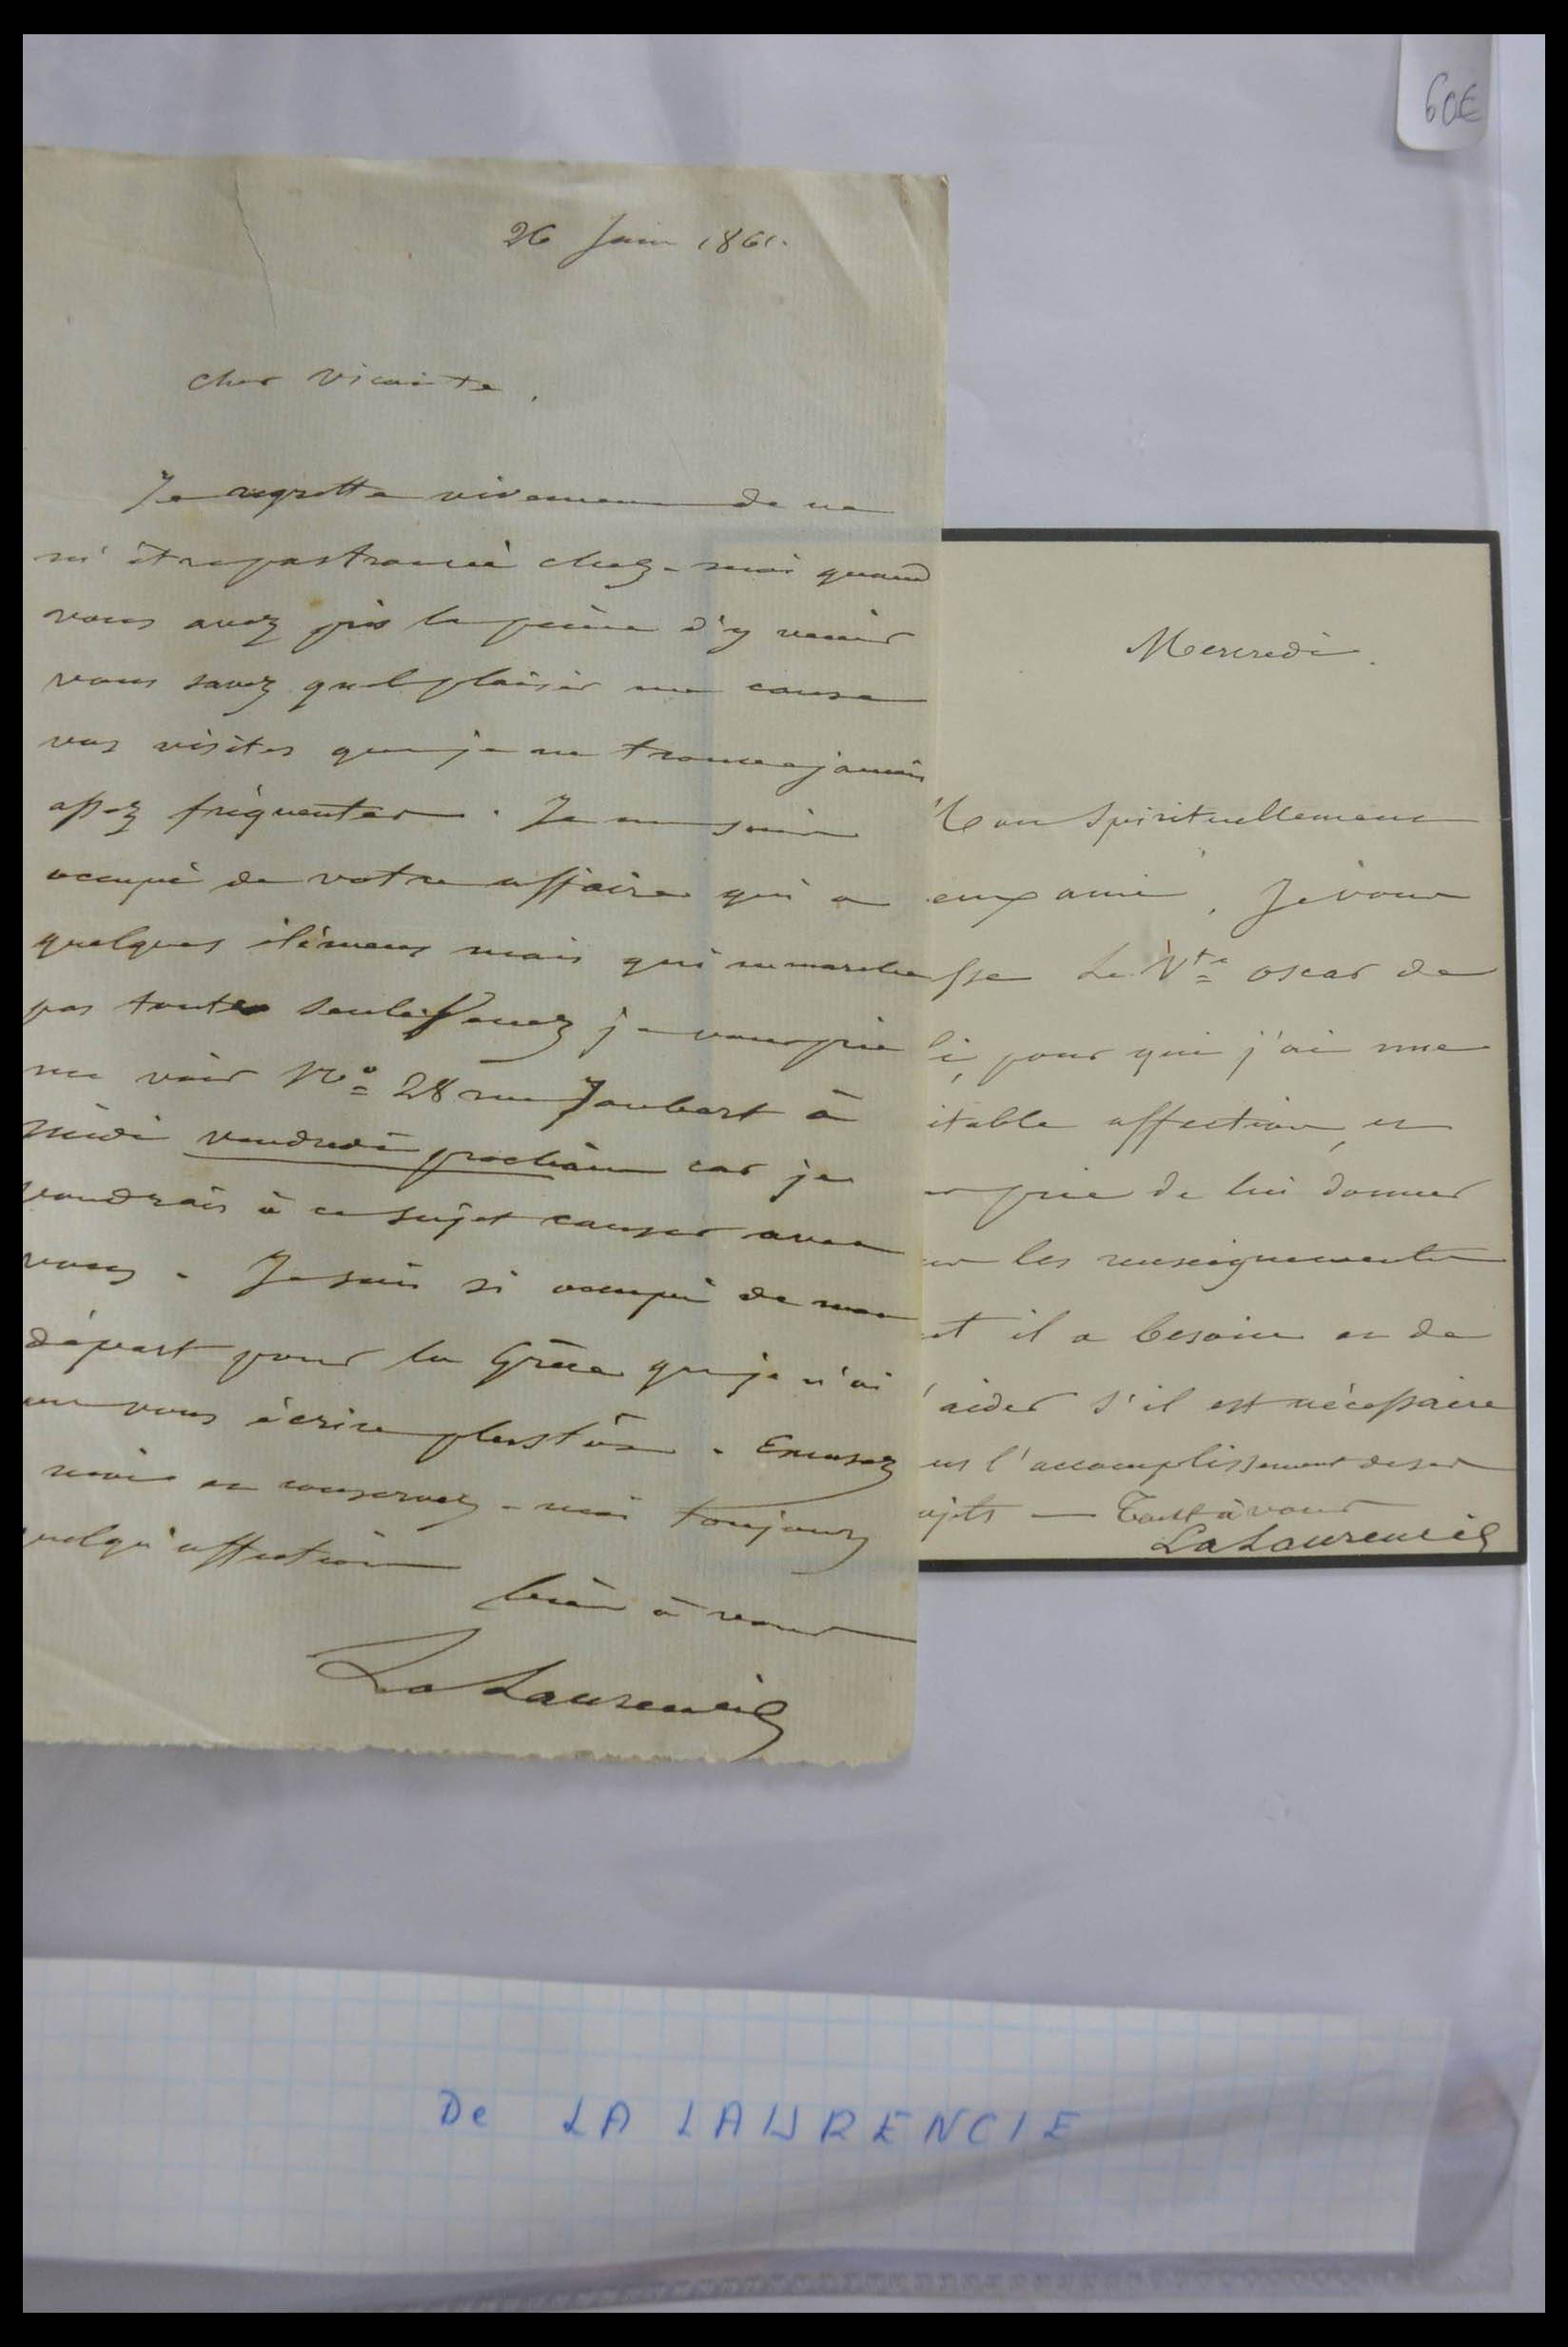 60€
26 Juin 1861.
cher Vicomte,
Je regrette vivement de ne
m'être pas trouvé chez-moi quand
vous avez pris la peine d'y venir
vous savez quel plaisir me cause
vos visites que je ne trouve jamais
assez fréquentes. Je me suis
occupé de votre affaire qui a
quelques élémens mais qui ne marche
pas toute seule. Venez je vous prie
me voir No 28 rue Joubert à
midi vendredi prochain car je
voudrais à ce sujet causer avec
vous. Je suis si occupé de mon
départ pour la Grèce que je n'ai
pu vous écrire plus tôt. Excusez
moi et conservez-moi toujours
quelqu'affection
bien à vous
La Laurencie
Mercredi.
Mon spirituellement
eux ami, Je vous
sse le Vte oscar de
li, pour qui j'ai une
itable affection, et
prie de lui donner
les renseignements
t il a besoin et de
'aider s'il est nécessaire
ns l'accomplissement de ses
ojets — Tout à vous
La Laurencie
De LA LAURENCIE